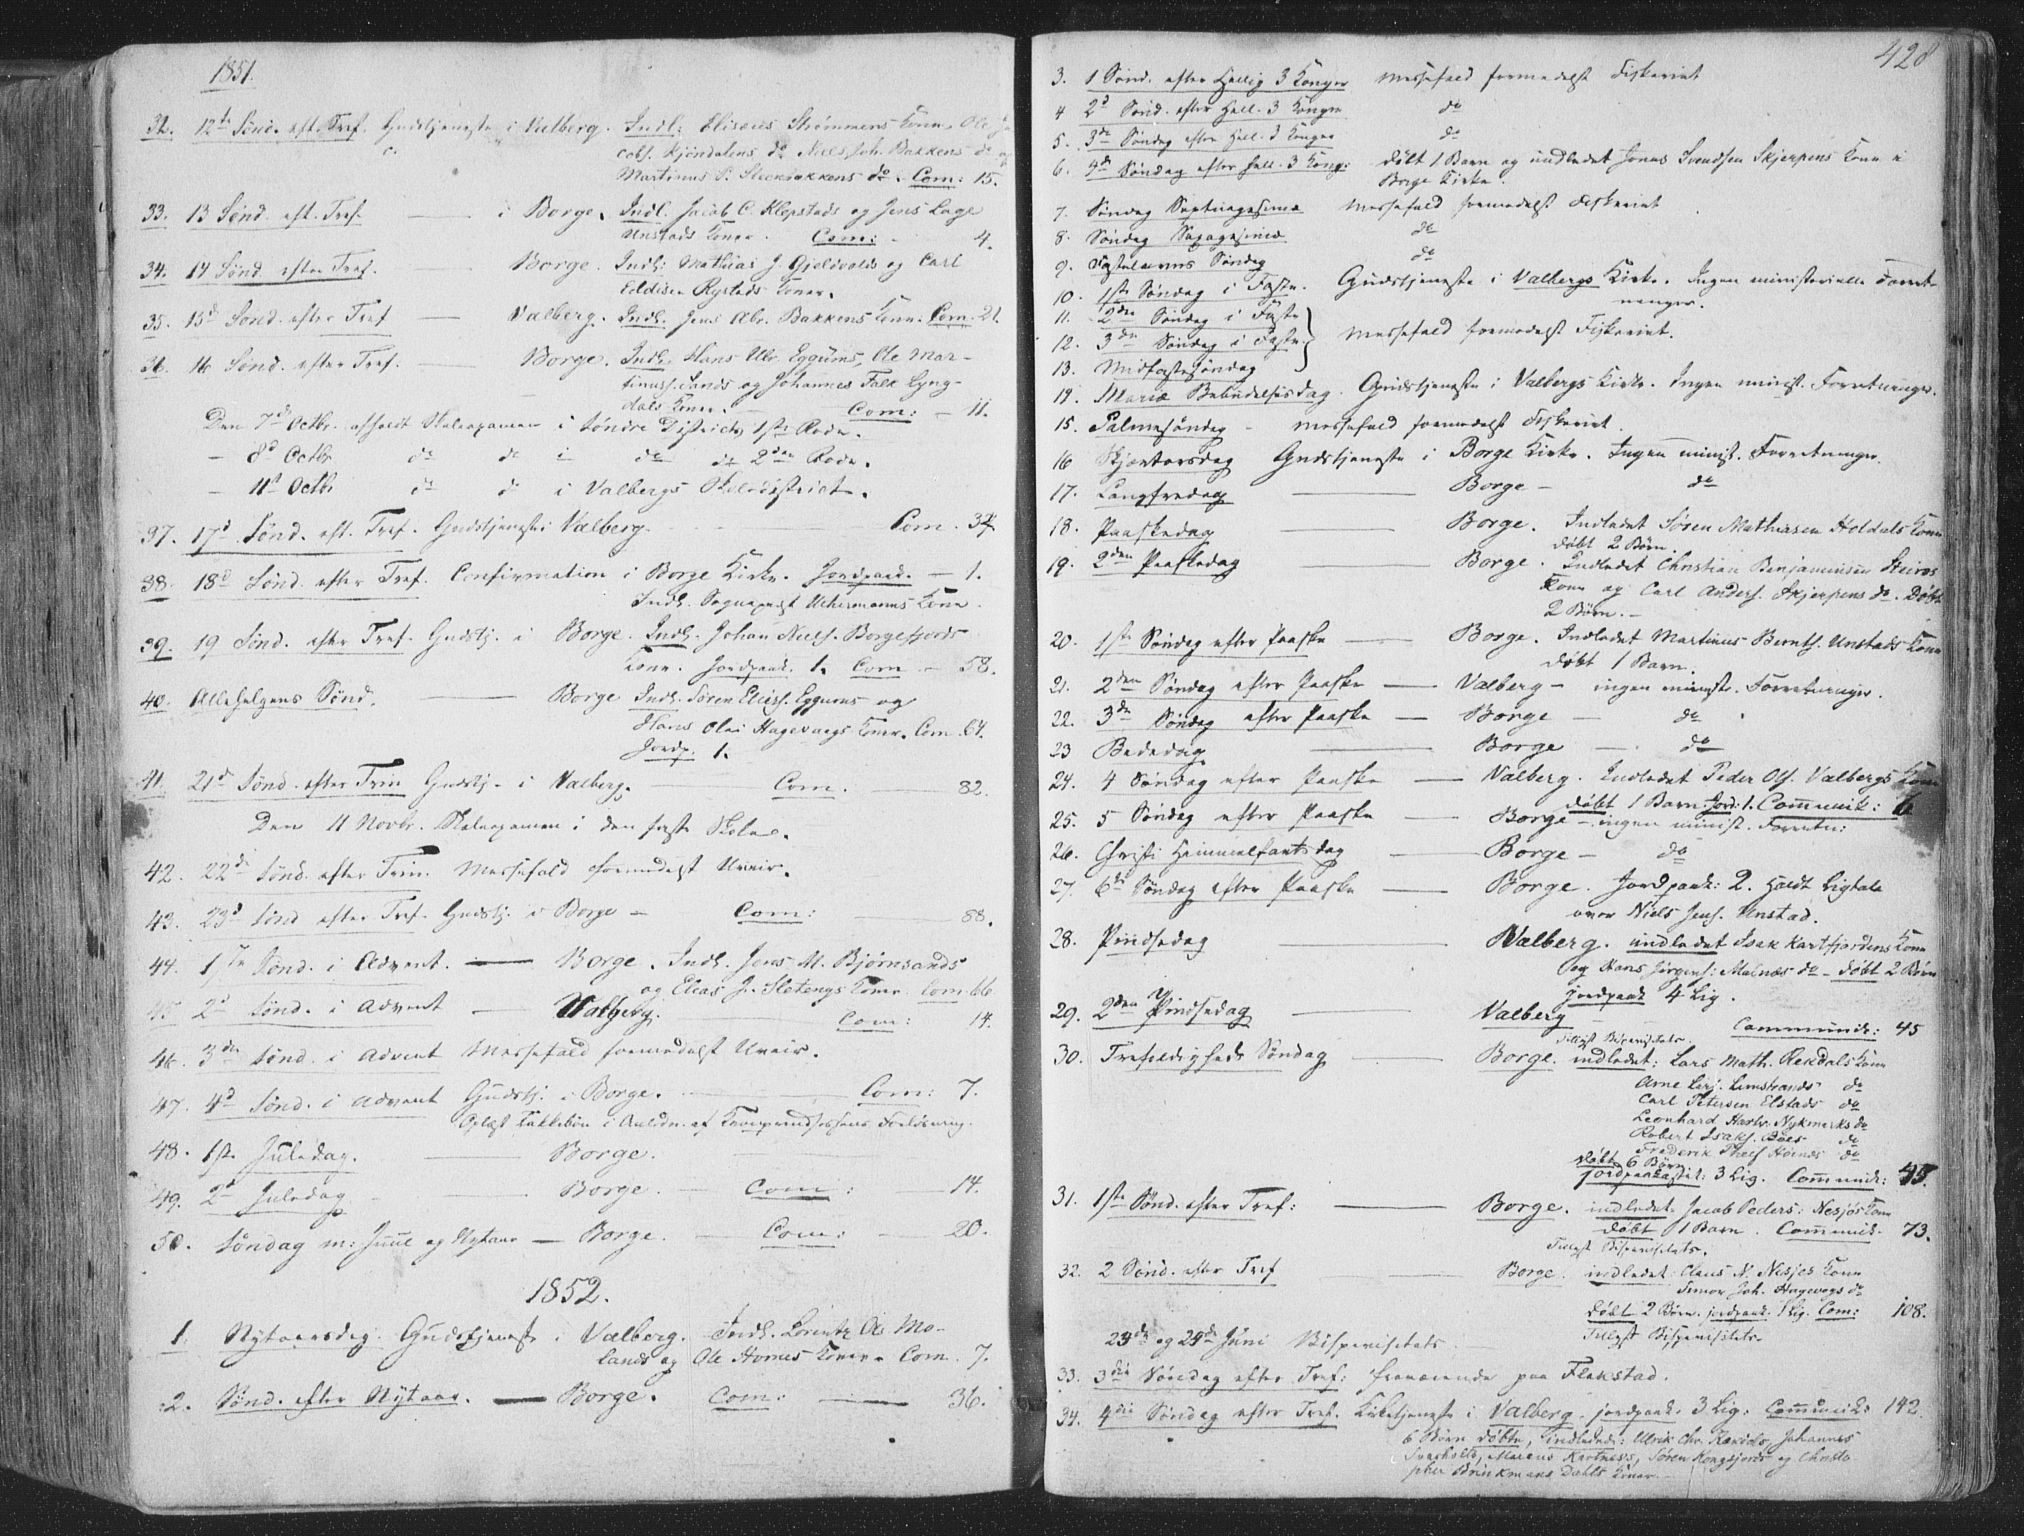 1851.
32. 12te Sønd. eft. Tref. Gudstjeneste i Valberg. Indl: Eliseus Strømmens Kone, Ole Ja-
cobs. Kjøndalens do Niels Joh. Bakkens do og
Martinus P. Steensakkens do. Com: 15.
33. 13 Sønd. eft. Tref. — i Borge. Indl. Jacob C. Klepstads og Jens Lage
Unstads Koner. Com: 4.
34. 14 Sønd. efter Tref. Borge. Indl: Mathias J. Gjeldvolds og Carl
Eddisen Rystads Koner.
35. 15d Sønd. efter Tref — Valberg. Indl. Jens Abr. Bakkens Kone. Com. 21.
36. 16 Sønd. efter Tref. — Borge. Indl. Hans Abr. Eggums, Ole Mar-
tinuss. Sands og Johannes Falk Lyng-
dals Koner. Com: — 11.
Den 7de Octbr. afholdt Skoleexamen i søndre Districts 1ste Rode.
— 8d Octbr do do i do do 2den Rode.
— 11d Octbr do do i Valbergs Skoledistrict.
37. 17d Sønd. eft. Tref. Gudstjeneste i Valberg. Com. 34
38. 18d Sønd. efter Tref. Confirmation i Borge Kirke. Jordpaak. — 1.
Indl. Sognepræst Uchermanns Kone.
39. 19 Sønd. efter Tref. Gudstj. i Borge. Indl. Johan Niels. Borgefjords
Kone. Jordpaak. 1. Com — 58.
40. Allehelgens Sønd. — Borge Indl. Søren Eliess. Eggums og
Hans Olai Hagevaags Koner. Com. 64.
Jordp. 1.
41. 21d Sønd. efter Trin Gudstj. i Valberg. Com. 82.
Den 11 Novbr. Skoleexamen i den faste Skole.
42. 22de Sønd. efter Trin. Messefald formedelst Uveir.
43. 23d Sønd efter Tref. Gudstj. i Borge — Com: 88.
44. 1ste Sønd. i Advent. — Borge. Indl. Jens M. Bjørnsands
og Elias J. Sletengs Koner. Com 66
45 2d Sønd. i Advent — Valberg. Com: 14.
46. 3die Sønd. i Advent Messefald formedelst Uveir.
47. 4d Sønd. i Advent Gudstj. i Borge. Com: 7.
Oplæst Takkebøn i Anledn. af Kronprindsessens Forløsning.
48. 1ste Juledag. — Borge.
49. 2d Juledag — Borge. — Com: — 14.
50. Søndag m: Juul og Nytaar — Borge. — Com: 20.
1852.
1. Nytaarsdag. Gudstjeneste i Valberg. Indl. Lorentz Ols Mo-
lands og Ole Hornes Koner. Com. 7.
2. Sønd. efter Nytaar. — Borge. Com: — 36.
428
3. 1 Sønd. efter Hellig 3 Konger Messefald formedelst Fiskeriet
4 2d Sønd. efter Hell. 3 Konger do
5. 3de Søndag efter Hell. 3 Konger do
6. 4de Søndag efter Hell. 3 Kong: døbt 1 Barn og indledet Jonas Svendsen Skjerpens Kone i
Borge Kirke.
7. Søndag Septuagesima Messefald formedelst Fiskeriet
8. Søndag Sexagesima do
9. Fastelavns Søndag do
10. 1ste Søndag i Faste. Gudstjeneste i Valbergs Kirke. Ingen ministerielle Forret-
ninger.
11. 2den Søndag i Faste
12. 3die Søndag i Faste } Messefald formedelst Fiskeriet.
13. Midfastesøndag
14. Mariæ Bebudelsesdag. Gudstjeneste i Valbergs Kirke. Ingen minist. Forretninger.
15. Palmesøndag — Messefald formedelst Fiskeriet.
16 Skjærtorsdag Gudstjeneste i Borge Kirke. Ingen minist. Forretninger.
17. Langfredag — Borge — do
18. Paaskedag — Borge. Indledet Søren Mathiasen Holdals Kone
døbt 2 Børn.
19. 2den Paaskedag — Borge. Indledet Christian Benjaminsen Steiros
Kone og Carl Anders. Skjerpens do. Døbt
2 Børn.
20. 1ste Søndag efter Paaske — Borge. Indledet Martinus Bernts. Unstads Kone
døbt 1 Barn.
21. 2den Søndag efter Paaske — Valberg — ingen minist. Forretninger.
22. 3die Søndag efter Paaske — Borge — do
23 Bededag — Borge — do
24. 4 Søndag efter Paaske — Valberg. Indledet Peder Ols. Valbergs Kone
døbt 1 Barn. Jord. 1. Communik: 6
25. 5 Søndag efter Paaske — Borge — ingen minist. Forretn:
26. Christi Himmelfarts dag — Borge — do
27. 6te Søndag efter Paaske — Borge. Jordpaak: 2. Holdt Ligtale
over Niels Jens. Unstad.
28. Pindsedag — Valberg. indledet Isak Kartfjordens Kone
og Hans Jørgens: Malnæs do — døbt 2 Børn
jordpaak 4 Lig.
29. 2den Pindsedag — Valberg Communik: 45
Tillyst Bispevisitats.
30. Trefoldigheds Søndag — Borge. indledet: Lars Math. Rekdals Kone
Arne Larj. Limstrands do
Carl Petersen Elstads do
Leonhard Hartv. Nykmarks do
Robert Isaks. Böes do
Frederik Thiis Hornes do
døbt 6 Børn
jordpaakastet: 3 Lig. Communik: 45.
31. 1ste Sønd. efter Tref: — Borge. indledet. Jacob Peders: Nesjes Kone
døbt 1 Barn. Communik. 73.
Tillyst Bispevisitats.
32. 2 Sønd. efter Tref — Borge. indledet: Claus N. Nesjes Kone
Simon Joh. Hagevogs do
døbt 2 Børn. jordpaak. 1 Lig. Com: 108.
Tillyst Bispevisitats.
23de og 24de Juni Bispevisitats.
33. 3die Søndag efter Tref: fraværende paa Flakstad.
34. 4die Søndag efter Tref. Kirketjeneste i Valberg. jordpaak. 3 Lig. Communik: 142.
6 Børn døbte, indledede: Ulrik Chr. Rekdals, Johannes
Svarholts, Marius Kartness, Søren Kongsjords og Christo
pher Brinkmans Dahls Koner.